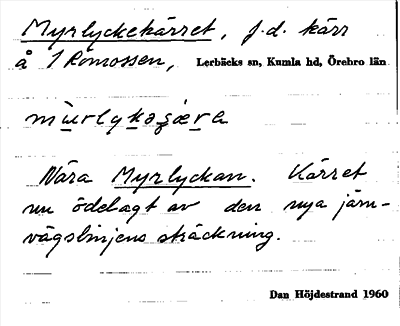 Myrlyckekärret, f.d. kärr
å Römossen, Lerbäcks sn, Kumla hd, Örebro län
Nära Myrlyckan. Kärret
nu ödelagt av den nya järn-
vägslinjens sträckning.
Dan Höjdestrand 1960